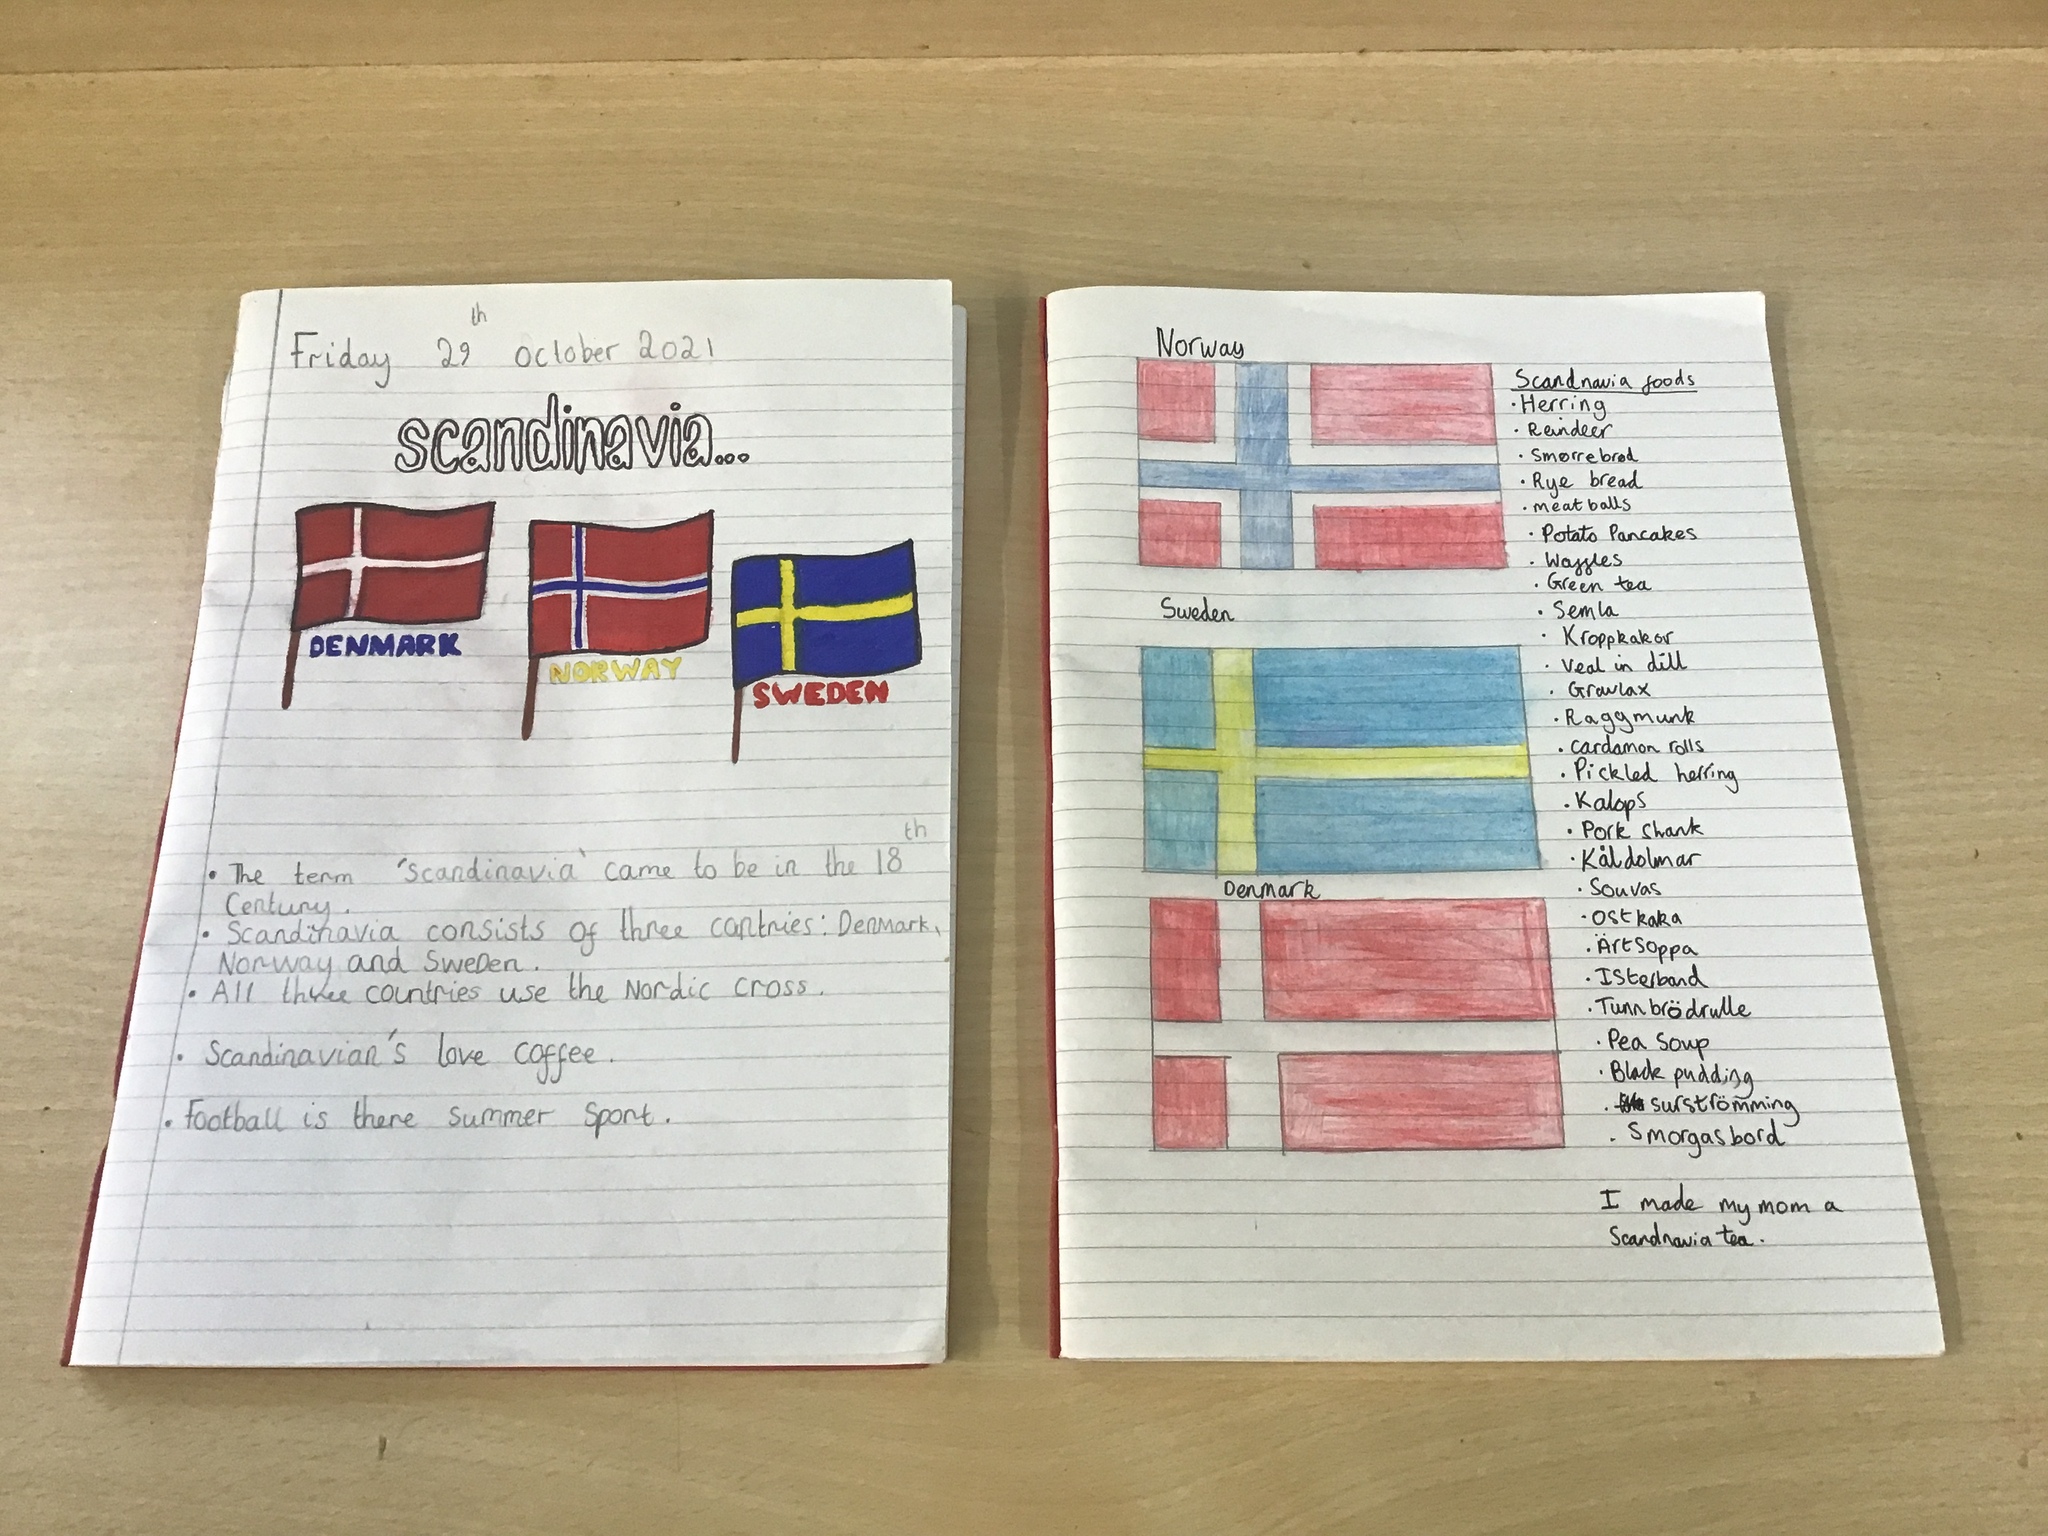 Friday 29th October 2021
scandinavia...
DENMARK
NORWAY
SWEDEN
• The term 'scandinavia' came to be in the 18th
Century.
• Scandinavia consists of three contries: Denmark,
Norway and Sweden.
• All three countries use the Nordic cross.
• Scandinavian's love coffee.
• Football is there summer sport.
Norway
Sweden
Denmark
Scandnavia foods
• Herring
• Reindeer
• Smørrebrød
• Rye bread
• meatballs
• Potato Pancakes
• Waffles
• Green tea
• Semla
• Kroppkakor
• Veal in dill
• Gravlax
• Raggmunk
• cardamon rolls
• Pickled herring
• Kalops
• Pork shank
• Kåldolmar
• Souvas
• Ostkaka
• Ärtsoppa
• Isterband
• Tunnbrödrulle
• Pea Soup
• Black pudding
• surströmming
• Smorgasbord
I made my mom a
Scandnavia tea.